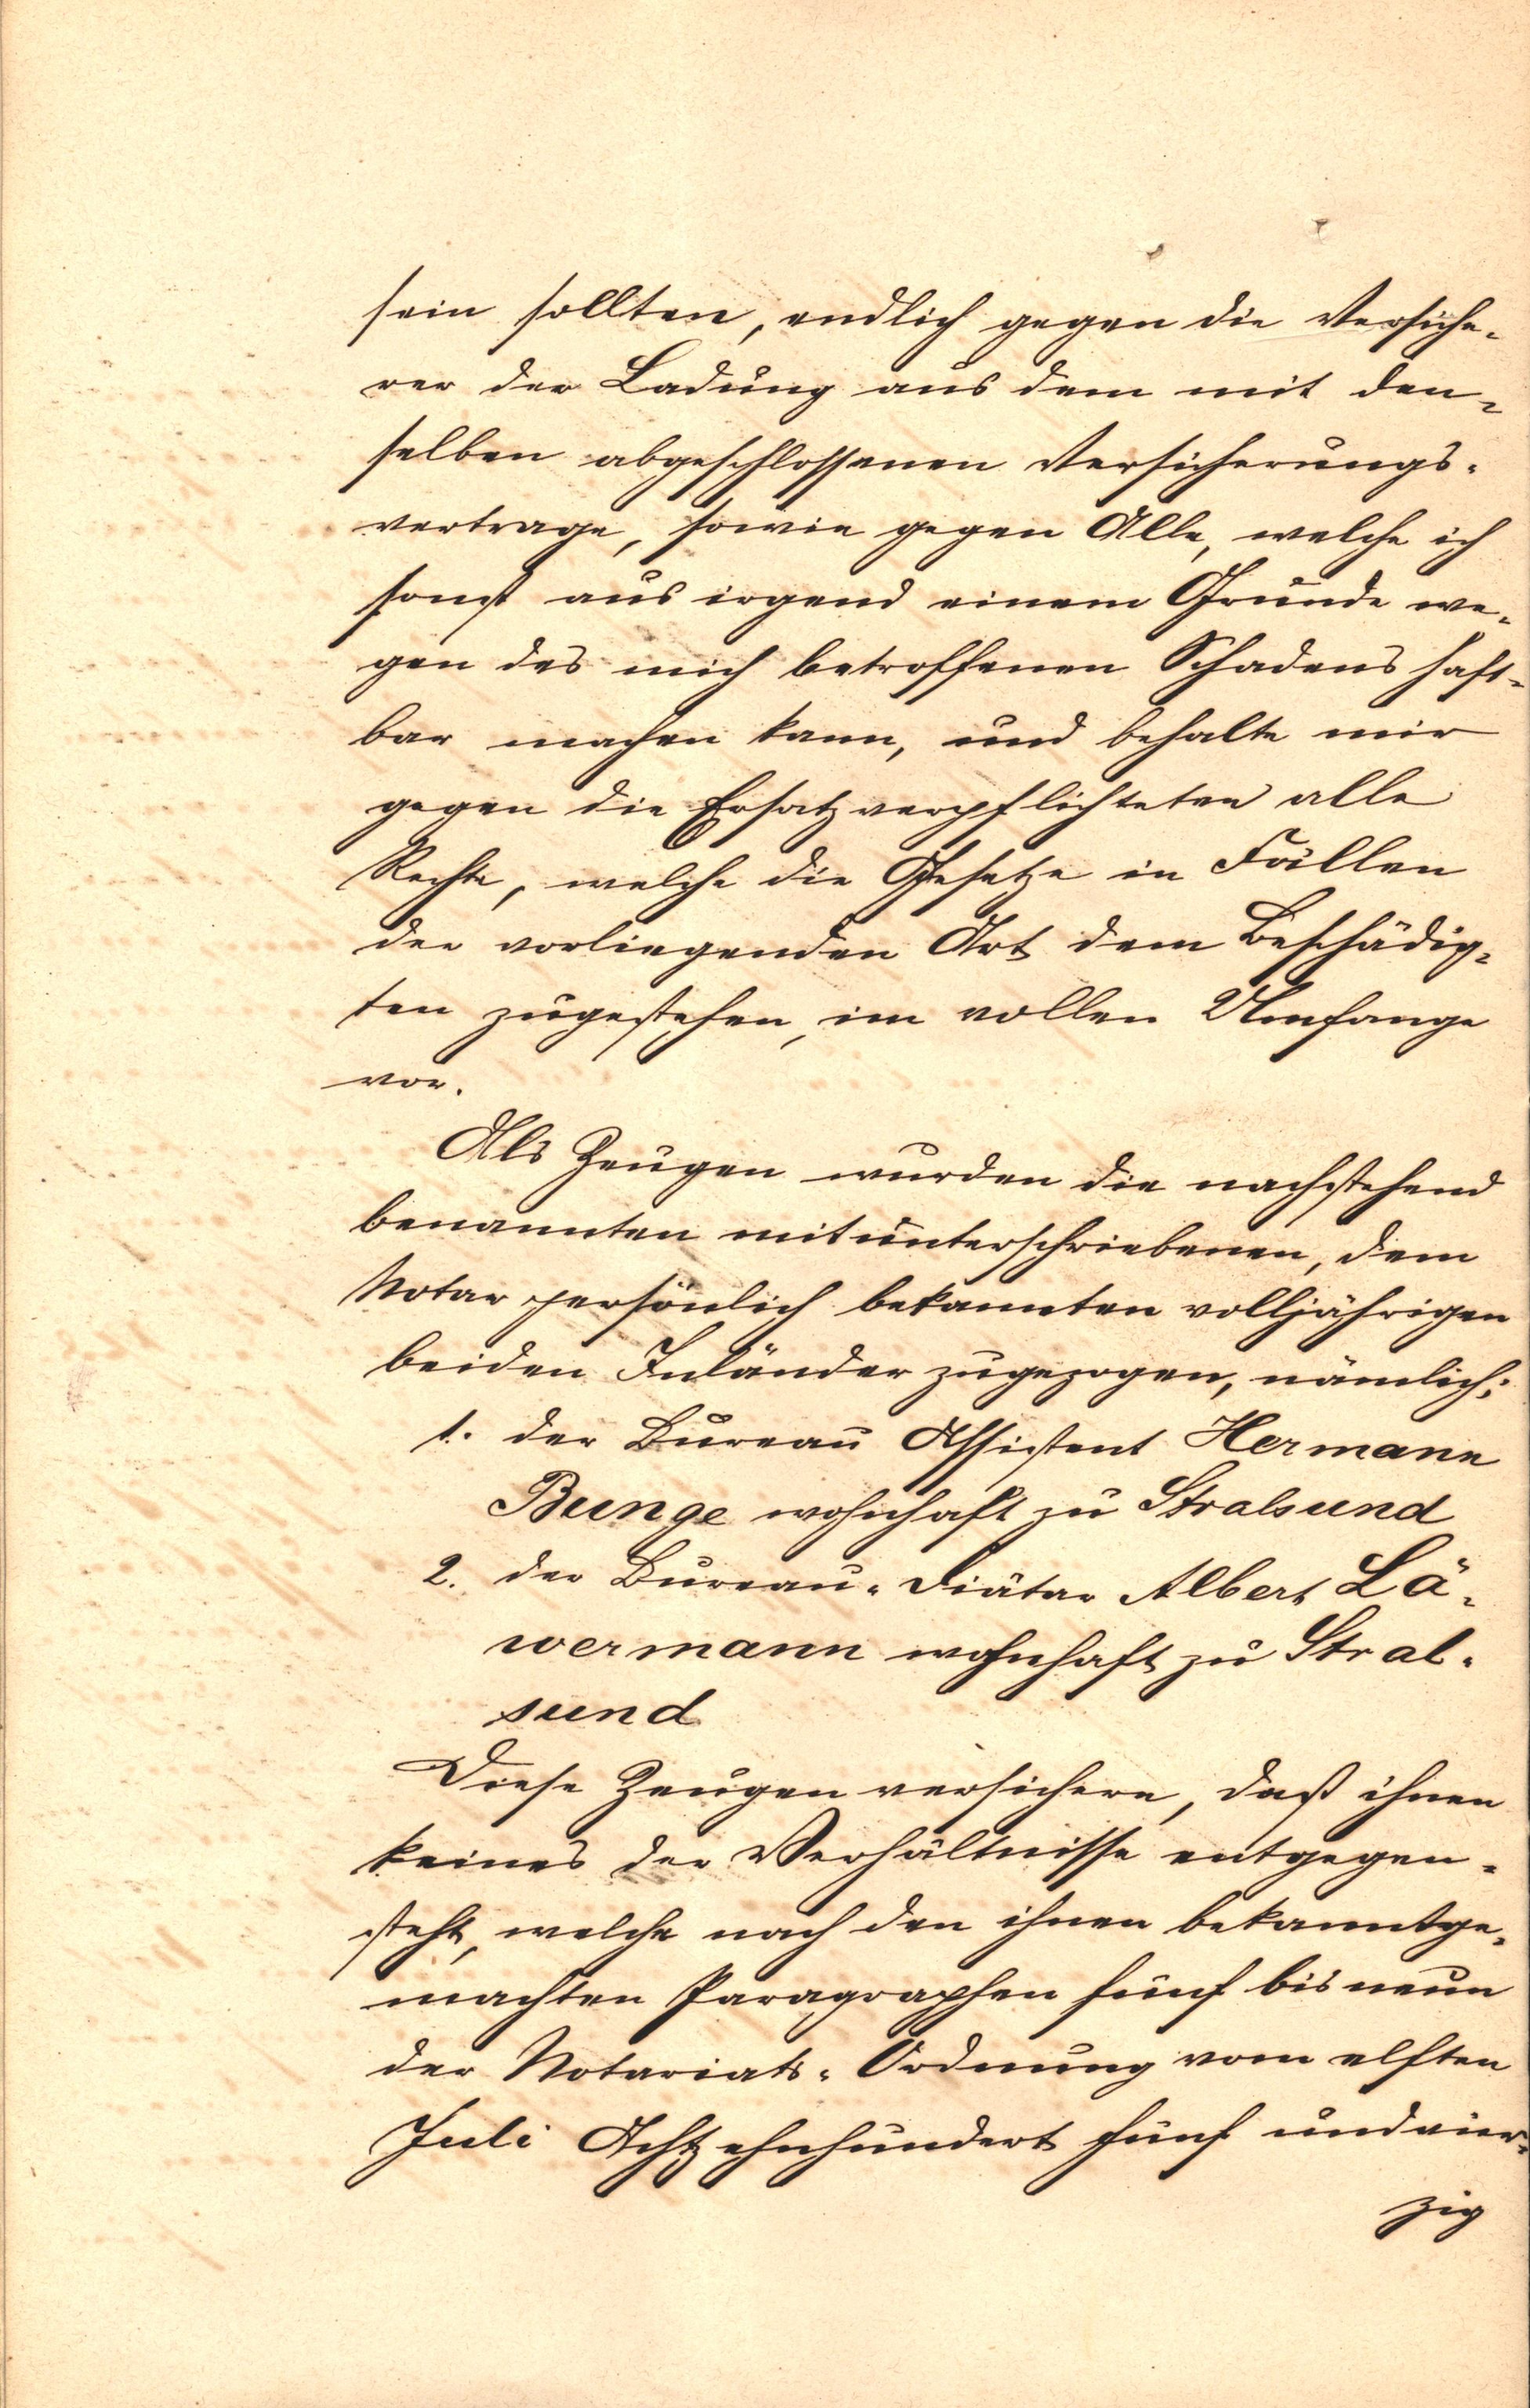 sein sollten, endlich gegen die Versiche-
rer der Ladung aus dem mit den-
selben abgeschlossenen Versicherungs-
vertrage, sowie gegen Alle, welche ich
sonst aus irgend einem Grunde we-
gen des mich betroffenen Schadens haft-
bar machen kann, und behalte mir
gegen die Ersatzverpflichteten alle
Rechte, welche die Gesetze in Fällen
der vorliegenden Art dem Beschädig-
ten zugestehen, im vollen Umfange
vor.
Als Zeugen wurden die nachstehend
benannten mitunterschriebenen, dem
Notar persönlich bekannten volljährigen
beiden Inländer zugezogen, nämlich:
1. der Bureau Assistent Hermann
Bunge wohnhaft zu Stralsund
2. der Bureau-Diätar Albert Lä-
wermann wohnhaft zu Stral-
sund
Diese Zeugen versichern, daß ihnen
keines der Verhältnisse entgegen-
steht, welche nach den ihnen bekanntge-
machten Paragraphen fünf bis neun
der Notariats-Ordnung vom elften
Juli Achtzehnhundert fünf und vier-
zig